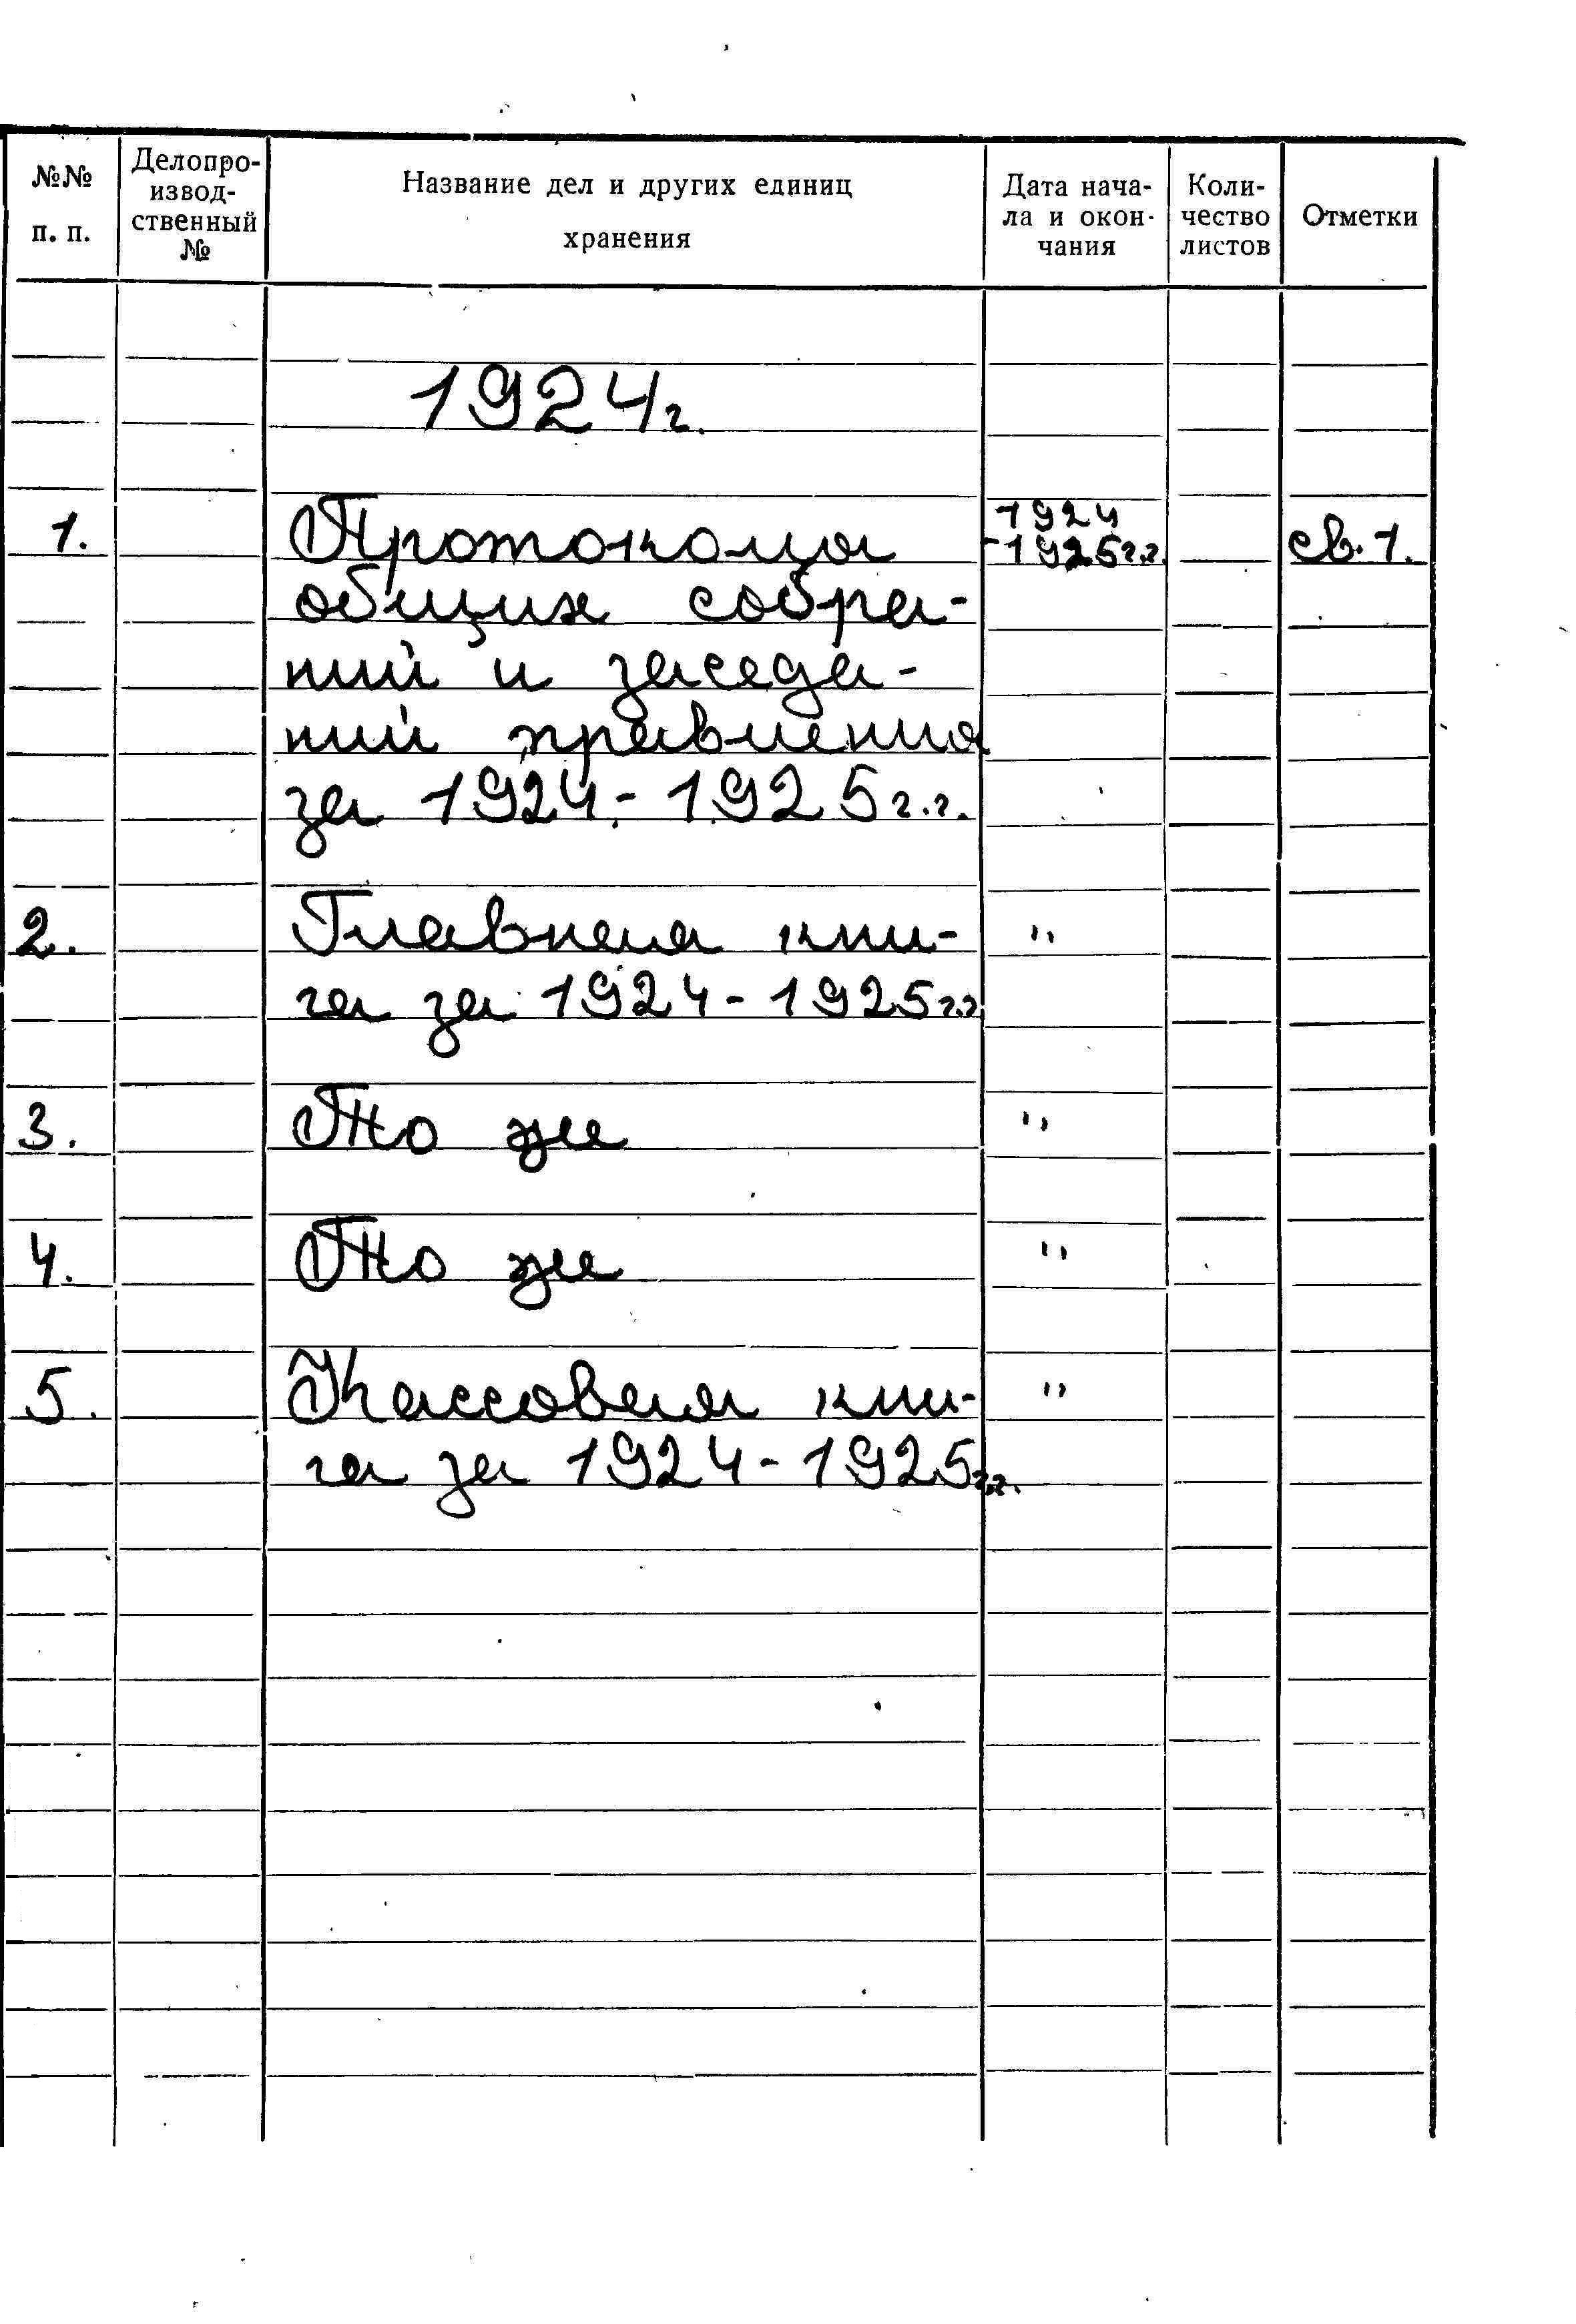 №№ п. п.
Делопро-
извод-
ственный
№
Название дел и других единиц
хранения
Дата нача-
ла и окон-
чания
Коли-
чество
листов
Отметки
1924г.
1. Протоколы 1924 -1925г.г. св. 1.
общих собра-
ний и заседа-
ний правления
за 1924-1925г.г.
2. Главная кни- "
га за 1924-1925г.г.
3. То же "
4. То же "
5. Кассовая кни- "
га за 1924-1925г.г.